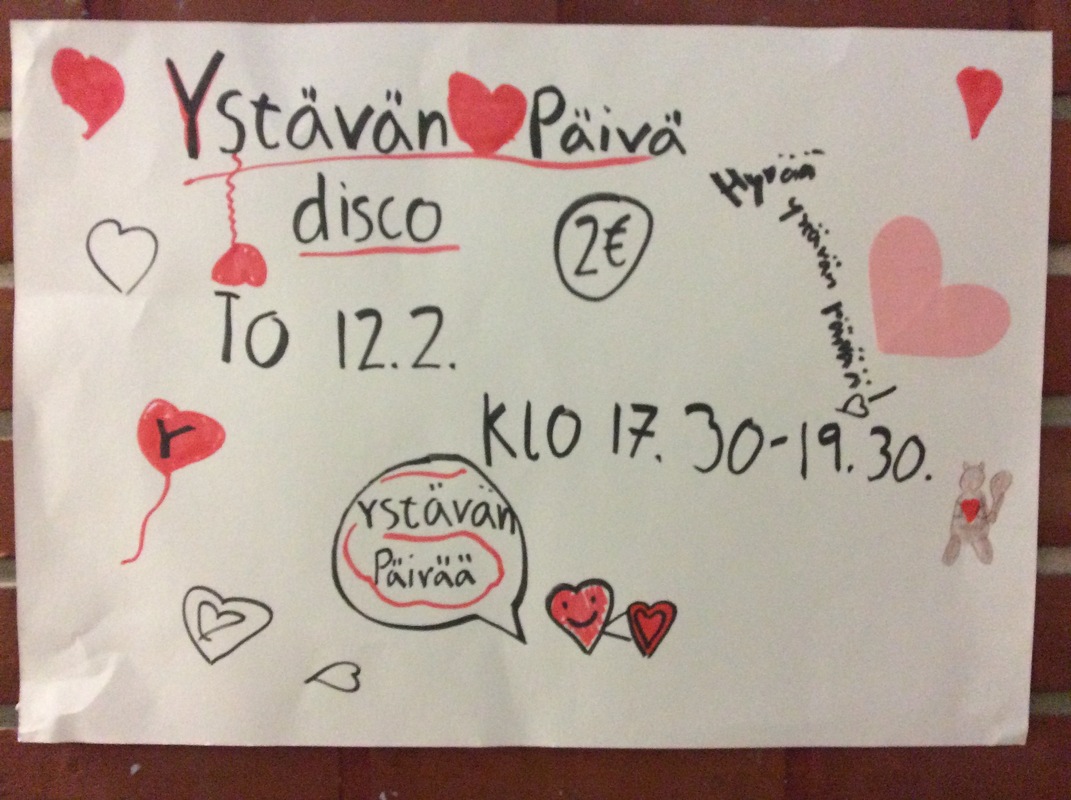 Ystävän Päivä
disco
2€
To 12.2.
Klo 17.30-19.30.
Hyvää
ystävän päivää!
r
Ystävän
Päivää